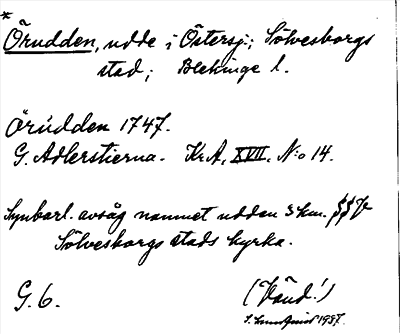 *
Örudden, udde i Östersj.; Sölvesborgs
stad; Blekinge l.
Örúdden 1747.
G. Adlerstierna. Kr.A, XVII, N:o 14.
Synbarl. avsåg namnet udden 3 km.
Sölvesborgs stads kyrka.
G. 6.
(Vänd!)
1937.